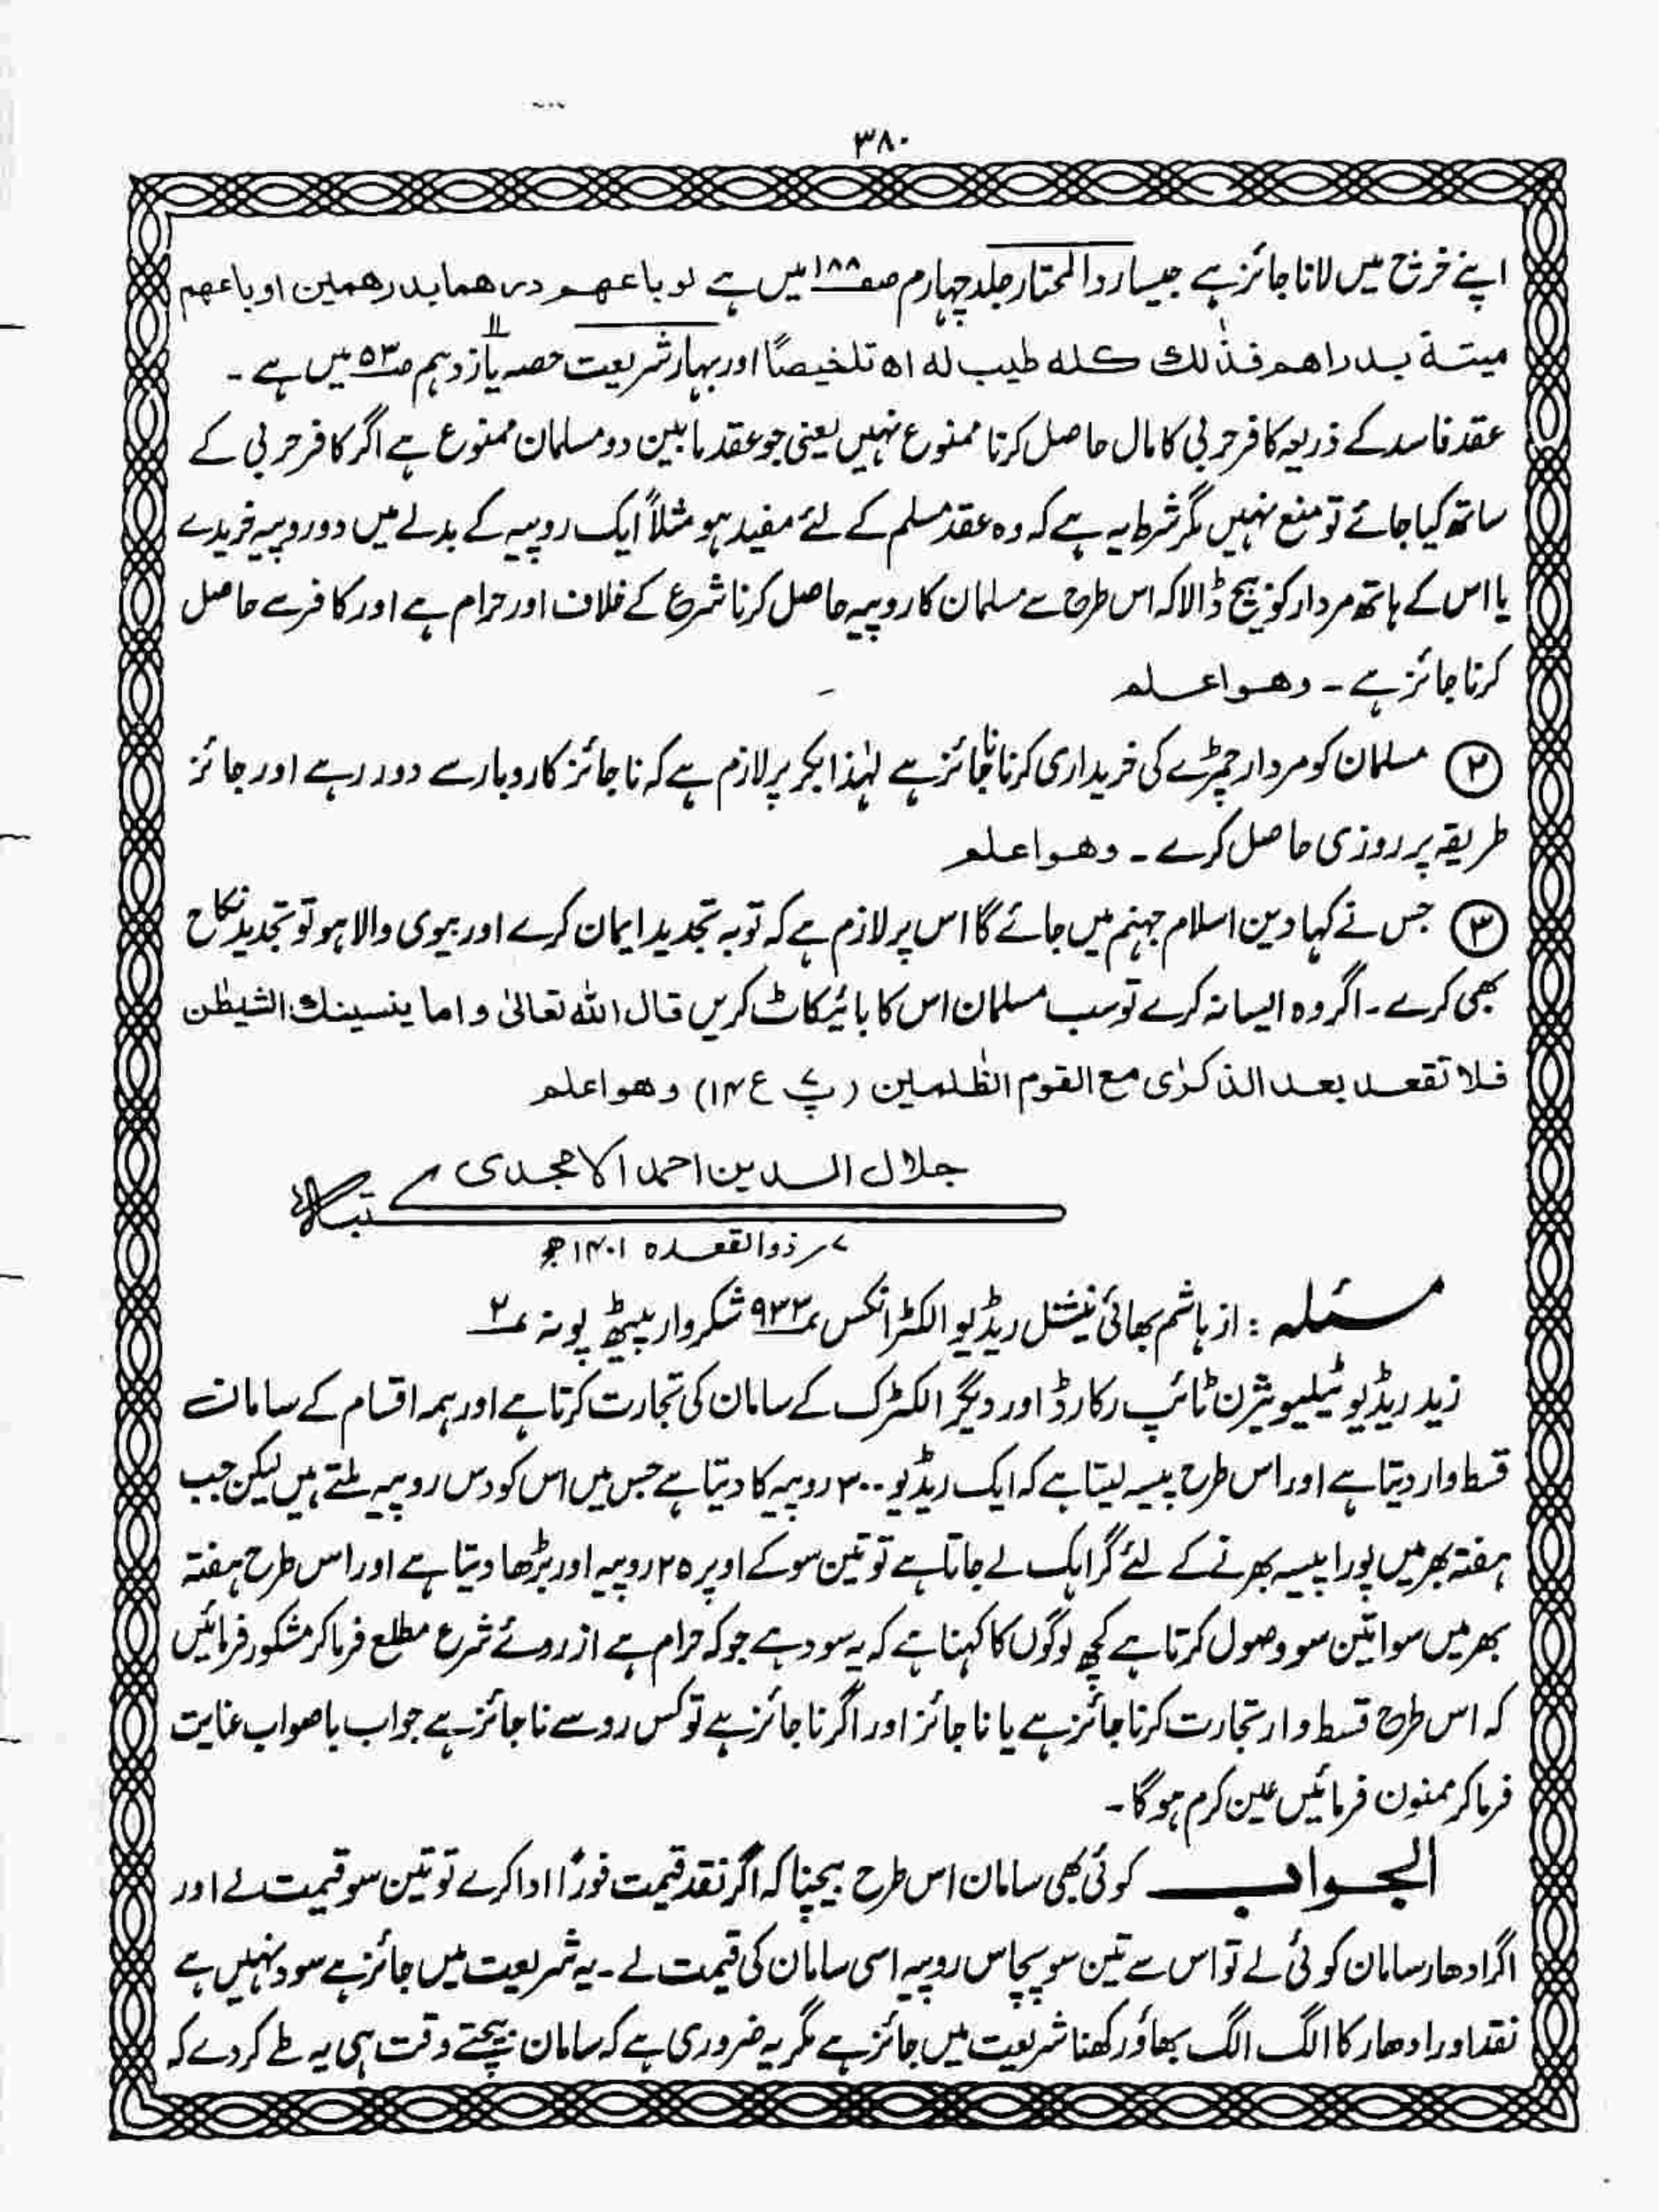 ۳۸۰
اپنے خرچ میں لانا جائز ہے جیسا ردالمحتار جلد چہارم صفحہ ۱۸۸ میں ہے لو باعهم درهما بدرهمین او باعهم
میتة بدراهم فذٰلك كله طیب له اه تلخیصًا اور بہار شریعت حصہ یازدہم ۱۱ ص۵۳ میں ہے ۔
عقد فاسد کے ذریعہ کافر حربی کا مال حاصل کرنا ممنوع نہیں یعنی جو عقد مابین دو مسلمان ممنوع ہے اگر کافر حربی کے
ساتھ کیا جائے تو منع نہیں مگر شرط یہ ہے کہ وہ عقد مسلم کے لئے مفید ہو مثلاً ایک روپیہ کے بدلے میں دو روپیہ خریدے
یا اس کے ہاتھ مردار کو بیچ ڈالا کہ اس طرح سے مسلمان کا روپیہ حاصل کرنا شرع کے خلاف اور حرام ہے اور کافر سے حاصل
کرنا جائز ہے ۔ وھو اعلم
۲ مسلمان کو مردار چمڑے کی خریداری کرنا ناجائز ہے لہٰذا بکر پر لازم ہے کہ ناجائز کاروبار سے دور رہے اور جائز
طریقہ پر روزی حاصل کرے ۔ وھو اعلم
۳ جس نے کہا دین اسلام جہنم میں جائے گا اس پر لازم ہے کہ توبہ تجدید ایمان کرے اور بیوی والا ہو تو تجدید نکاح
بھی کرے ۔ اگر وہ ایسا نہ کرے تو سب مسلمان اس کا بائیکاٹ کریں قال اللہ تعالیٰ و اما ینسینك الشیطٰن
فلا تقعد بعد الذکرٰی مع القوم الظٰلمین (پ۷ ع ۱۴) وھو اعلم
جلال الدین احمد الامجدی
کتبہ
۷ ذوالقعدہ ۱۴۰۱ھ
مسئلہ : از ہاشم بھائی نیشنل ریڈیو الکٹرانکس ۹۳۳ شکروار پیٹھ پونہ ۲
زید ریڈیو ٹیلیویژن ٹائپ رکارڈ اور دیگر الکٹرک کے سامان کی تجارت کرتا ہے اور ہمہ اقسام کے سامان
قسط وار دیتا ہے اور اس طرح پیسہ لیتا ہے کہ ایک ریڈیو ۳۰۰ روپیہ کا دیتا ہے جس میں اس کو دس روپیہ ملتے ہیں لیکن جب
ہفتہ بھر میں پورا پیسہ بھرنے کے لئے گراہک لے جاتا ہے تو تین سو کے اوپر ۲۵ روپیہ اور بڑھا دیتا ہے اور اس طرح ہفتہ
بھر میں سوا تین سو وصول کرتا ہے کچھ لوگوں کا کہنا ہے کہ یہ سود ہے جو کہ حرام ہے از روئے شرع مطلع فرما کر مشکور فرمائیں
کہ اس طرح قسط وار تجارت کرنا جائز ہے یا ناجائز اور اگر ناجائز ہے تو کس رو سے ناجائز ہے جواب باصواب عنایت
فرما کر ممنون فرمائیں عین کرم ہوگا ۔
الجواب کوئی بھی سامان اس طرح بیچنا کہ اگر نقد قیمت فوراً ادا کرے تو تین سو قیمت لے اور
اگر ادھار سامان کوئی لے تو اس سے تین سو پچاس روپیہ اسی سامان کی قیمت لے ۔ یہ شریعت میں جائز ہے سود نہیں ہے
نقد اور ادھار کا الگ الگ بھاؤ رکھنا شریعت میں جائز ہے مگر یہ ضروری ہے کہ سامان بیچتے وقت ہی یہ طے کر دے کہ